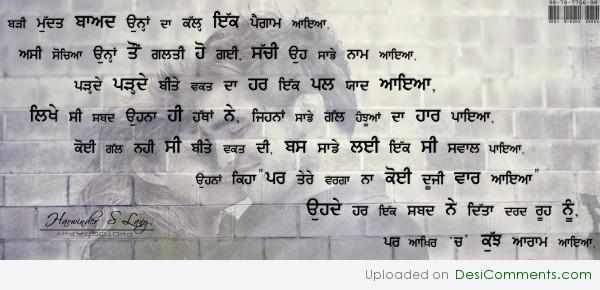 98-78-7766-98
ਬੜੀ ਮੁੱਦਤ ਬਾਅਦ ਉਨ੍ਹਾਂ ਦਾ ਕੱਲ੍ਹ ਇੱਕ ਪੈਗਾਮ ਆਇਆ,
ਅਸੀ ਸੋਚਿਆ ਉਨ੍ਹਾਂ ਤੋਂ ਗਲਤੀ ਹੋ ਗਈ, ਸੱਚੀ ਉਹ ਸਾਡੇ ਨਾਮ ਆਇਆ,
ਪੜ੍ਹਦੇ ਪੜ੍ਹਦੇ ਬੀਤੇ ਵਕਤ ਦਾ ਹਰ ਇੱਕ ਪਲ ਯਾਦ ਆਇਆ,
ਲਿਖੇ ਸੀ ਸਬਦ ਉਹਨਾ ਹੀ ਹੱਥਾਂ ਨੇ, ਜਿਹਨਾਂ ਸਾਡੇ ਗੱਲ ਹੰਝੂਆਂ ਦਾ ਹਾਰ ਪਾਇਆ,
ਕੋਈ ਗੱਲ ਨਹੀ ਸੀ ਬੀਤੇ ਵਕਤ ਦੀ, ਬਸ ਸਾਡੇ ਲਈ ਇੱਕ ਸੀ ਸਵਾਲ ਪਾਇਆ,
ਉਹਨਾਂ ਕਿਹਾ"ਪਰ ਤੇਰੇ ਵਰਗਾ ਨਾ ਕੋਈ ਦੂਜੀ ਵਾਰ ਆਇਆ"
ਉਹਦੇ ਹਰ ਇਕ ਸਬਦ ਨੇ ਦਿੱਤਾ ਦਰਦ ਰੂਹ ਨੂੰ,
ਪਰ ਆਖਿਰ 'ਚ" ਕੁੱਝ ਆਰਾਮ ਆਇਆ,
Harwinder S Lavy
PHOTOGRAPHY
Uploaded on DesiComments.com